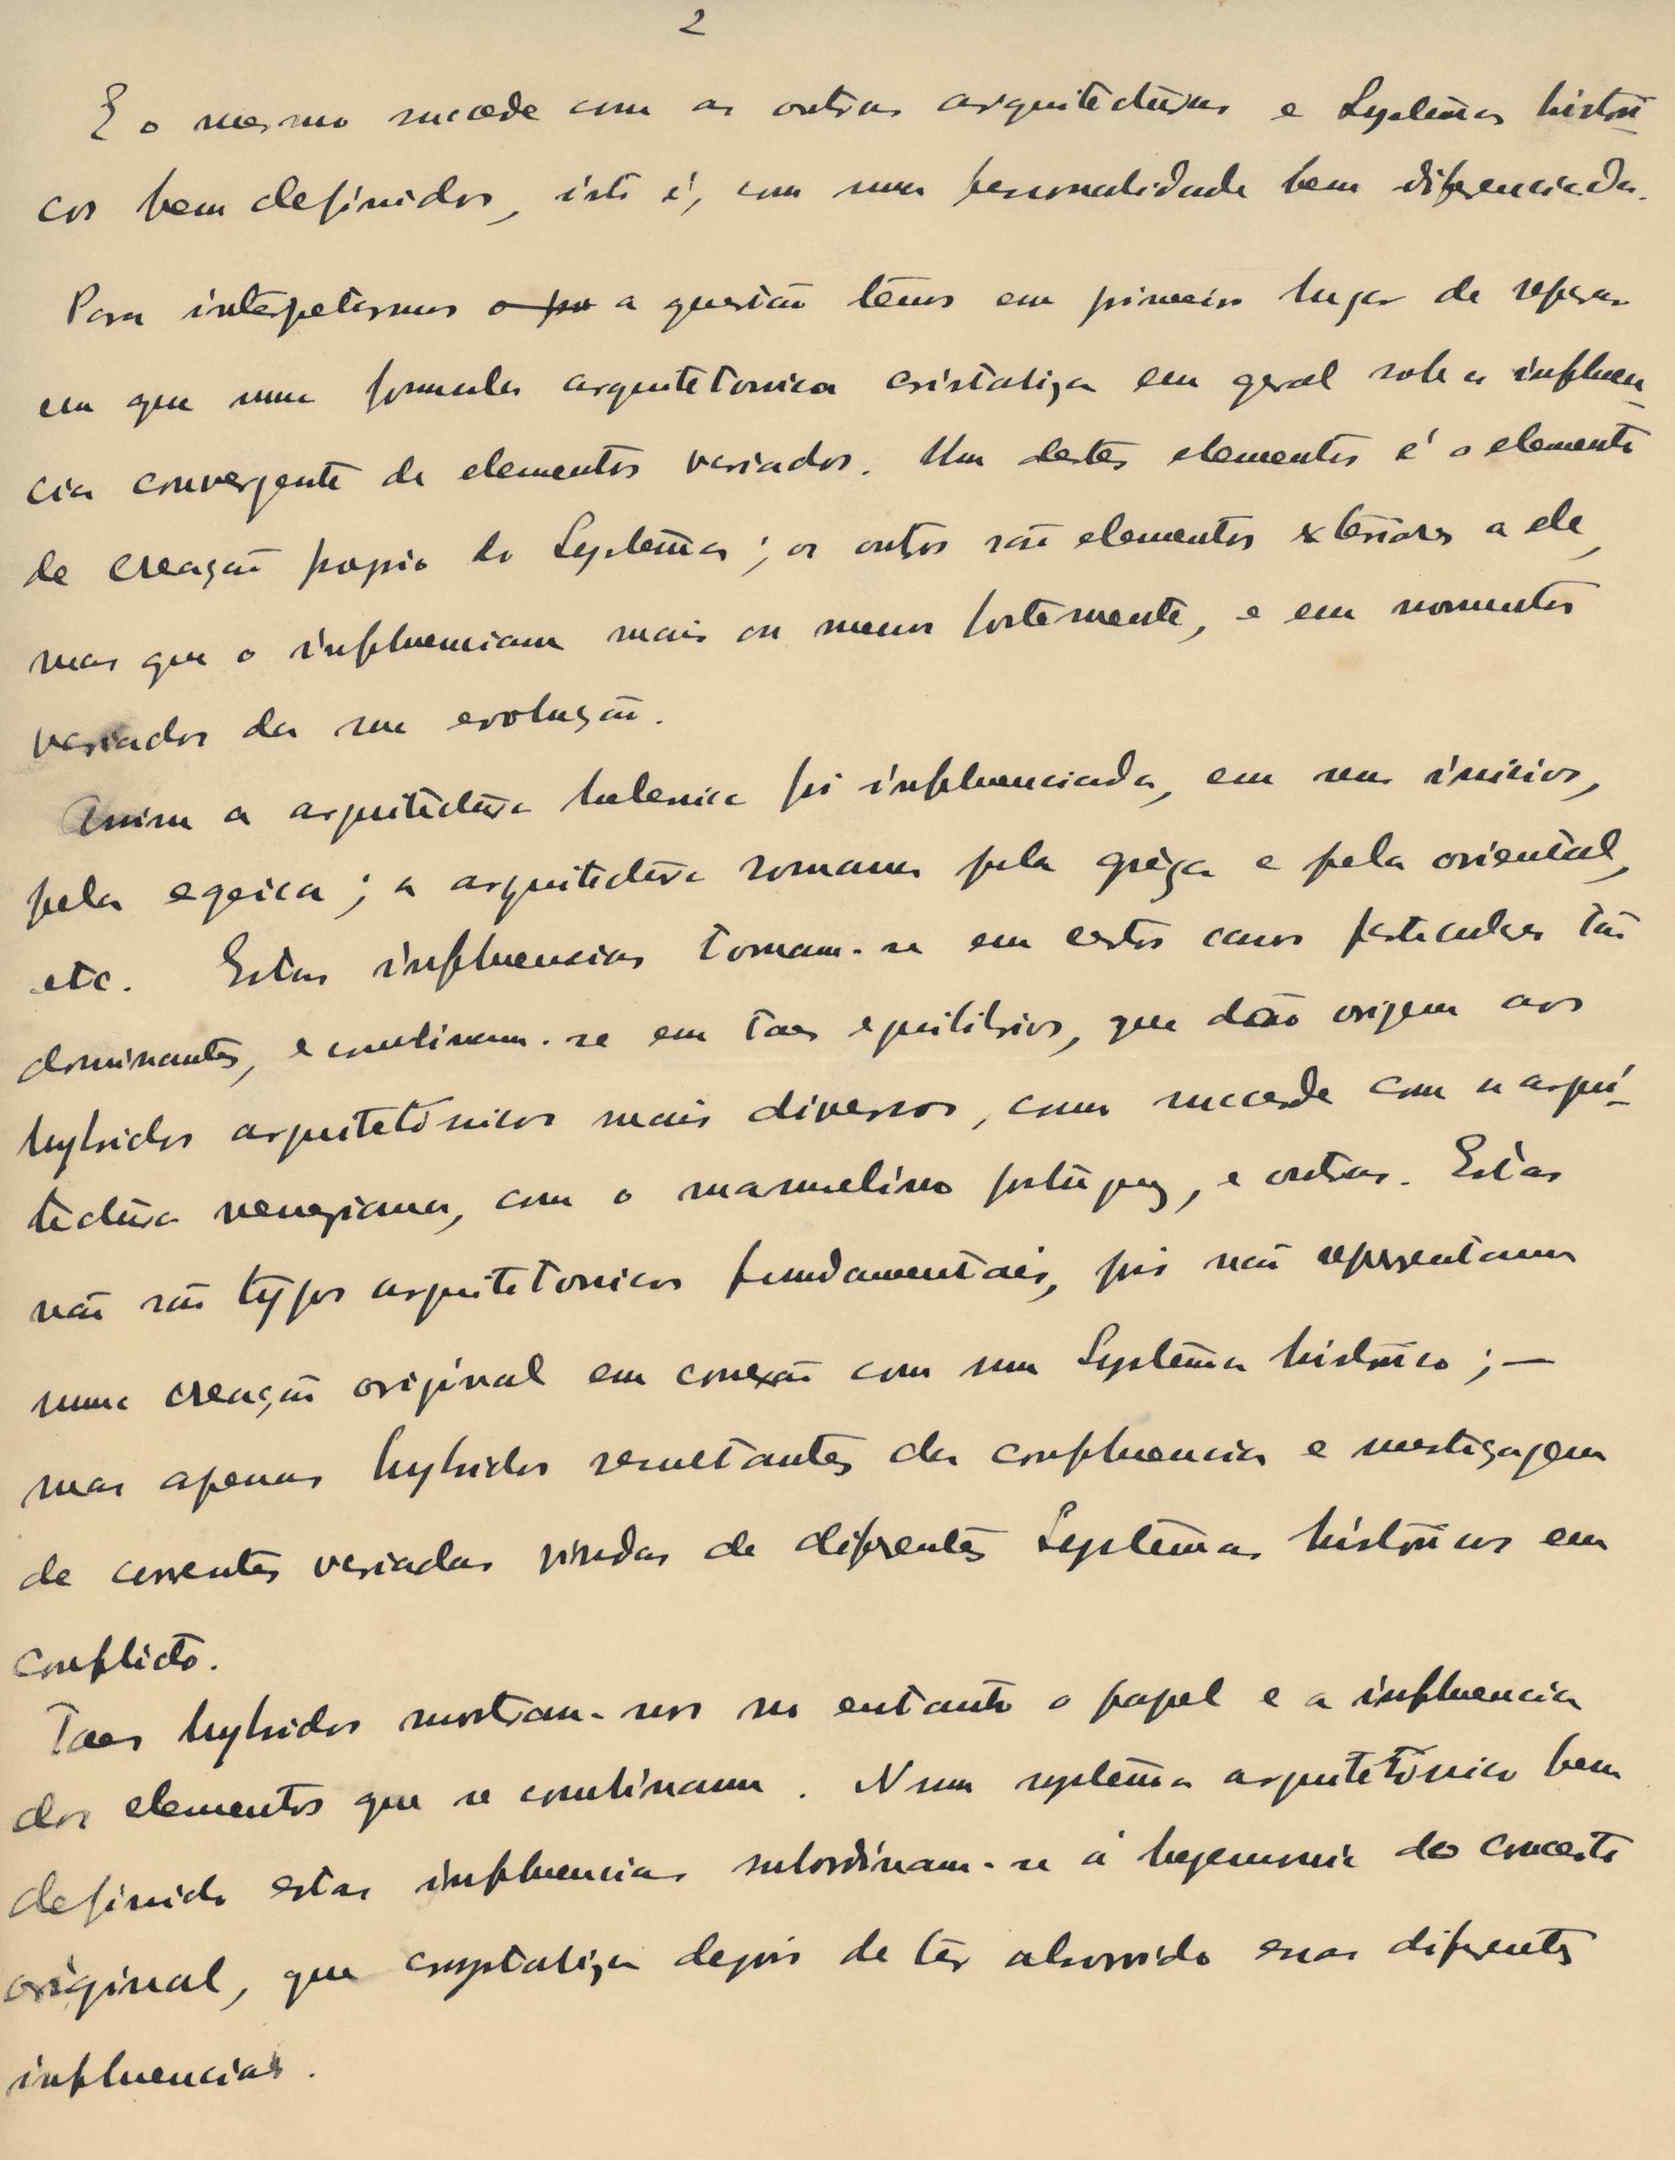 2
E o mesmo succede com as outras arquitecturas e Systemas histori-
cos bem definidos, isto é, com uma personalidade bem diferenciada.
Para interpetarmos o pro a questão têmos em primeiro lugar de reparar
em que uma formula arquitetonica cristaliza em geral sob a influen-
cia convergente de elementos variados. Um destes elementos é o elemento
de creação proprio do Systema; os outros são elementos exteriores a ele,
mas que o influenciam mais ou menos fortemente, e em momentos
variados da sua evolução.
Assim a arquitectura helenica foi influenciada, em seus inicios,
pela egeica; a arquitectura romana pela grêga e pela oriental,
etc. Estas influencias tornam-se em certos casos particulares tão
dominantes, e combinam-se em taes equilibrios, que dão origem aos
hybridos arquitetónicos mais diversos, como succede com a arqui-
tectura veneziana, com o manuelino portuguez, e outras. Estas
não são typos arquitetonicos fundamentais, pois não representam
uma creação original em conexão com um Systema histórico; —
mas apenas hybridos resultantes da confluencia e mestiçagem
de correntes variadas vindas de diferentes Systemas históricos em
conflicto.
Taes hybridos mostram-nos no entanto o papel e a influencia
dos elementos que se combinam. Num systema arquitetónico bem
definido estas influencias subordinam-se á hegemonia do conceito
original, que crystaliza depois de ter absorvido essas diferentes
influencias.